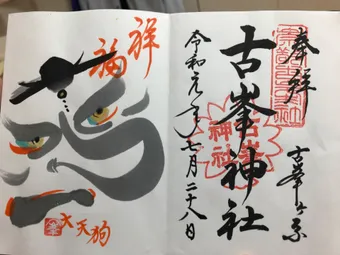 奉拝
古峯ヶ原
古峯神社
令和元年七月二十八日
古峯
神社
祥
福
大天狗